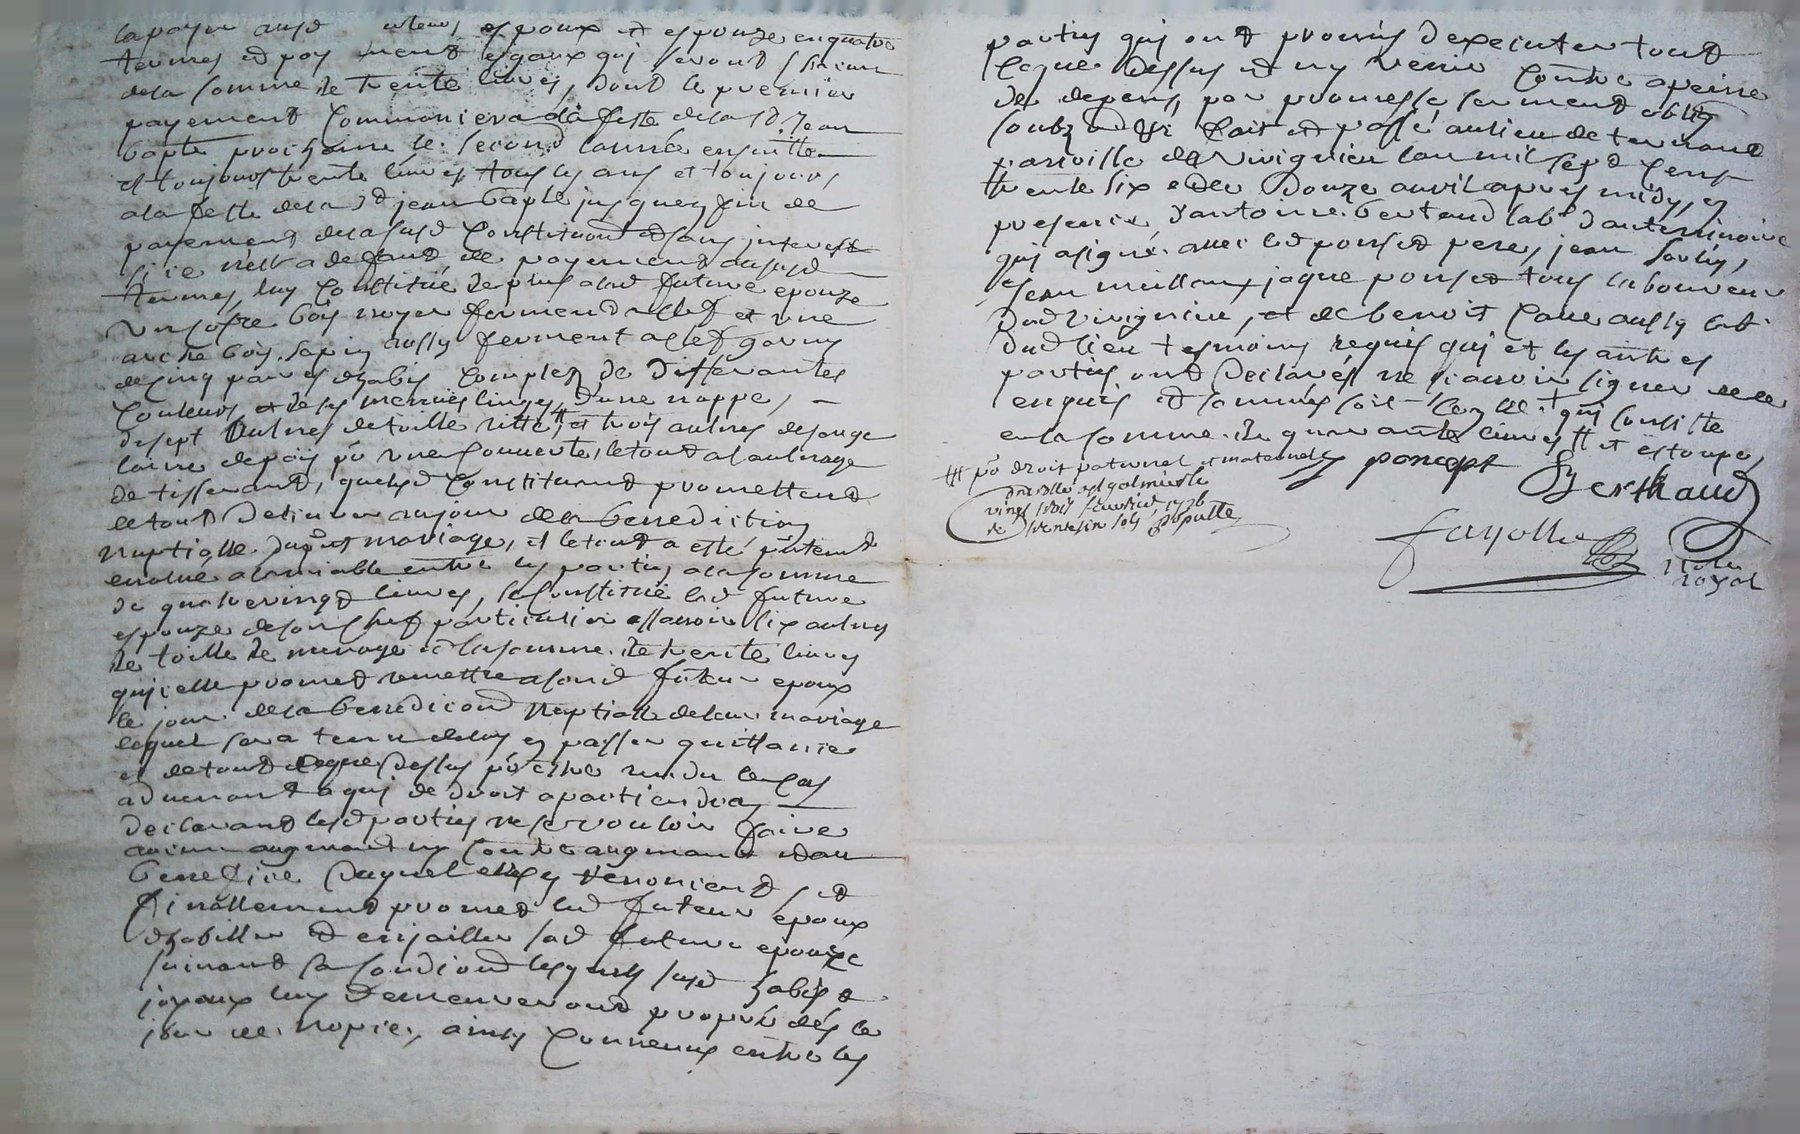 la payer ausd futurs espoux et espouze en quatre
termes et payements esgaux qui seront chacun
de la somme de trente livres, dont le premier
payement commancera a la feste de la St Jean
bapte prochaine le second lannée ensuitte
et toujours trente livres tous les ans et toujours
a la feste de la St jean bapte jusques a fin de
payement de lasusd constitu͠on et sans interest
si ce n'est a deffaut de payement aususd
termes, luy constitué de plus a lad future epouze
un cofre bois noyer fermend a clef et une
arche bois sapin aussy ferment a clef garny
de cinq paires dhabis complet de differantes
couleurs et de ses menus linges, d'une nappe,
de sept aulnes de toille ritte, et trois aulnes de sarge
laine de païs p͠r une couverte, le tout a l'aulnage
de tisserand, que lesd constituant promettent
le tout delivrer au jour de la benediction
nuptialle dud p͠nt mariage, et le tout a esté p͠ntem͠t
evalué a lamiable entre les parties a la somme
de quatre vingt livres, se constitue lad future
espouze de son chef particulier assavoir six aulnes
de toille de menage et la somme de trente livres
qu'icelle promet remettre a son d futeur epoux
le jour de la benedicon nuptialle de leur mariage
lequel sera tenu de luy en passer quittance
et de tout ce que dessus p͠r estre rendu le cas
advenant a qui de droit apartiendra,
declarant lesd parties ne se vouloir faire
aucun augment ny contre augment et au
benefice duquel elles y renoncent, et
finallement promet led futeur epoux
dhabiller et enjailler sad future epouze
suivant sa condi͠on lesquels susd habis et
joyaux luy demeureront propre dés le
jour de nopce, ainsy convenus entre les
parties qui ont promis dexecuter tout
ce que dessus et ny venir contre a peine
de depens, par promesse serment oblig
soubz et Ré fait et passé au lieu de ternand
paroisse de Virignieu lan mil sept cent
trente six et le douze avril apres midy, en
presence d'antoine bertaud lab͠r
qui a signé avec led ponset pere, jean
jean jaque ponset tous laboureurs
dud Virignieu, et de benoit aussy lab͠r
dud lieu tesmoins requis qui et les autres
parties ont declarés ne scavoir signer de ce
enquis et sommés soit qui consiste
en la somme de quarante livres
p͠r droit paternel et maternel ponsept Berthaud
st galmier le
vingt 1736
de
fayolle
no͠re
royal